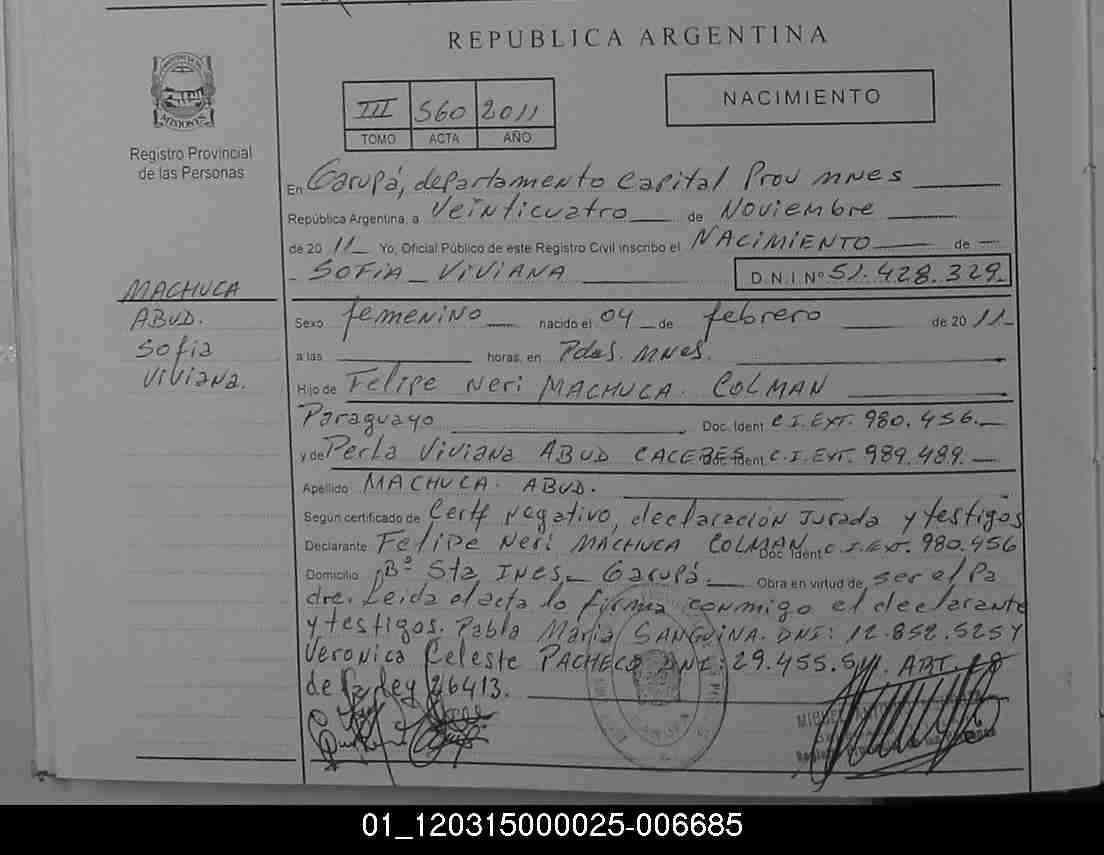 REPUBLICA ARGENTINA
MISIONES
Registro Provincial
de las Personas
III 560 2011
TOMO ACTA AÑO
NACIMIENTO
En Garupá, departamento Capital Prov MNES
República Argentina, a Veinticuatro de Noviembre
de 20 11 Yo, Oficial Público de este Registro Civil inscribo el NACIMIENTO de
SOFIA VIVIANA D.N.I Nº 51.428.329
MACHUCA
ABUD.
Sofia
Viviana.
Sexo femenino nacido el 04 de febrero de 20 11
a las horas, en Pdas. MNES.
Hijo de Felipe Neri MACHUCA. COLMAN
Paraguayo Doc. Ident C I. EXT. 980.456.
y de Perla Viviana ABUD CACERES Doc. Ident C.I. EXT. 989.489.
Apellido MACHUCA. ABUD.
Según certificado de Certf Negativo, declaración Jurada y testigos
Declarante Felipe Neri MACHUCA COLMAN Doc. Ident C.I. Ext. 980.456
Domicilio Bº Sta. Ines. Garupá. Obra en virtud de ser el Pa
dre. Leida el acta lo firma conmigo el declarante
y testigos. Pabla Maria SANGUINA. DNI: 12.852.525 Y
Veronica Celeste PACHECO DNI: 29.455.541. ART. 28
de la ley 26413.
01_120315000025-006685